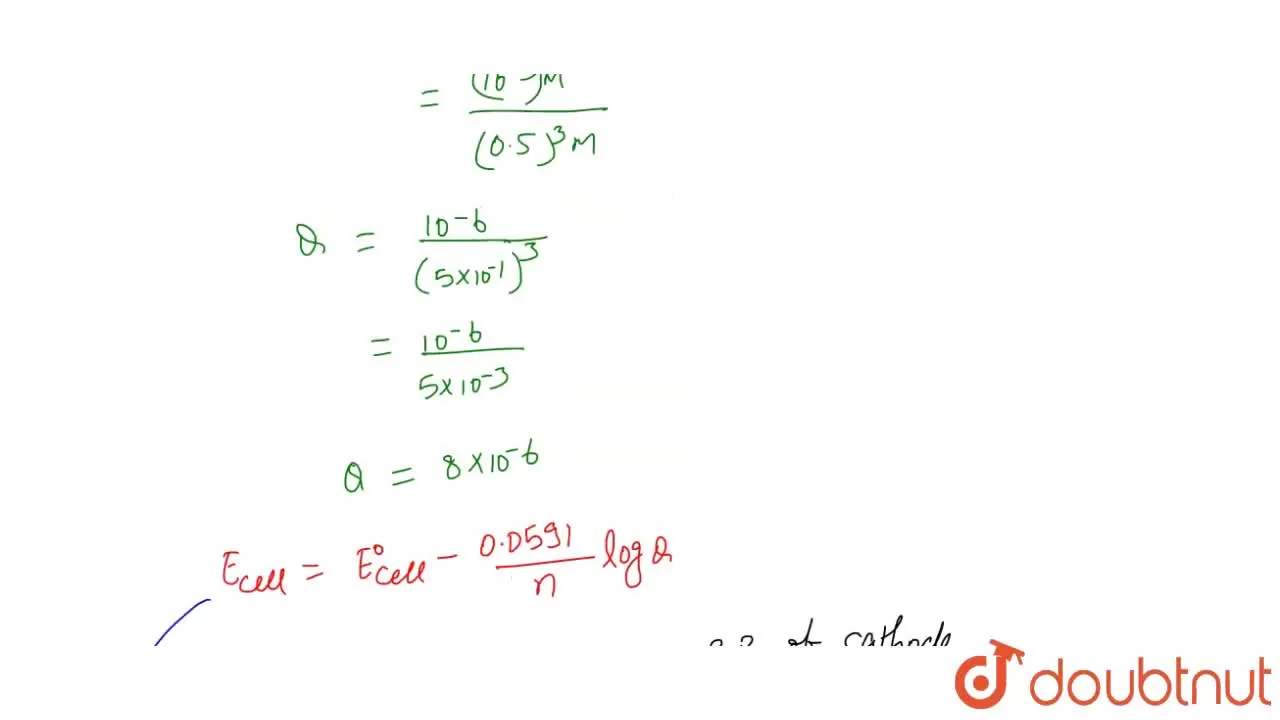 = (10⁻ )M / (0.5)³ M
Q = 10⁻⁶ / (5×10⁻¹)³
= 10⁻⁶ / 5×10⁻³
Q = 8×10⁻⁶
E_cell = E°_cell − 0.0591 / n log Q
of cathode
doubtnut